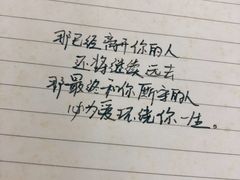 那已经离开你的人
还将继续远去
那最终和你厮守的人
以为爱环绕你一生。